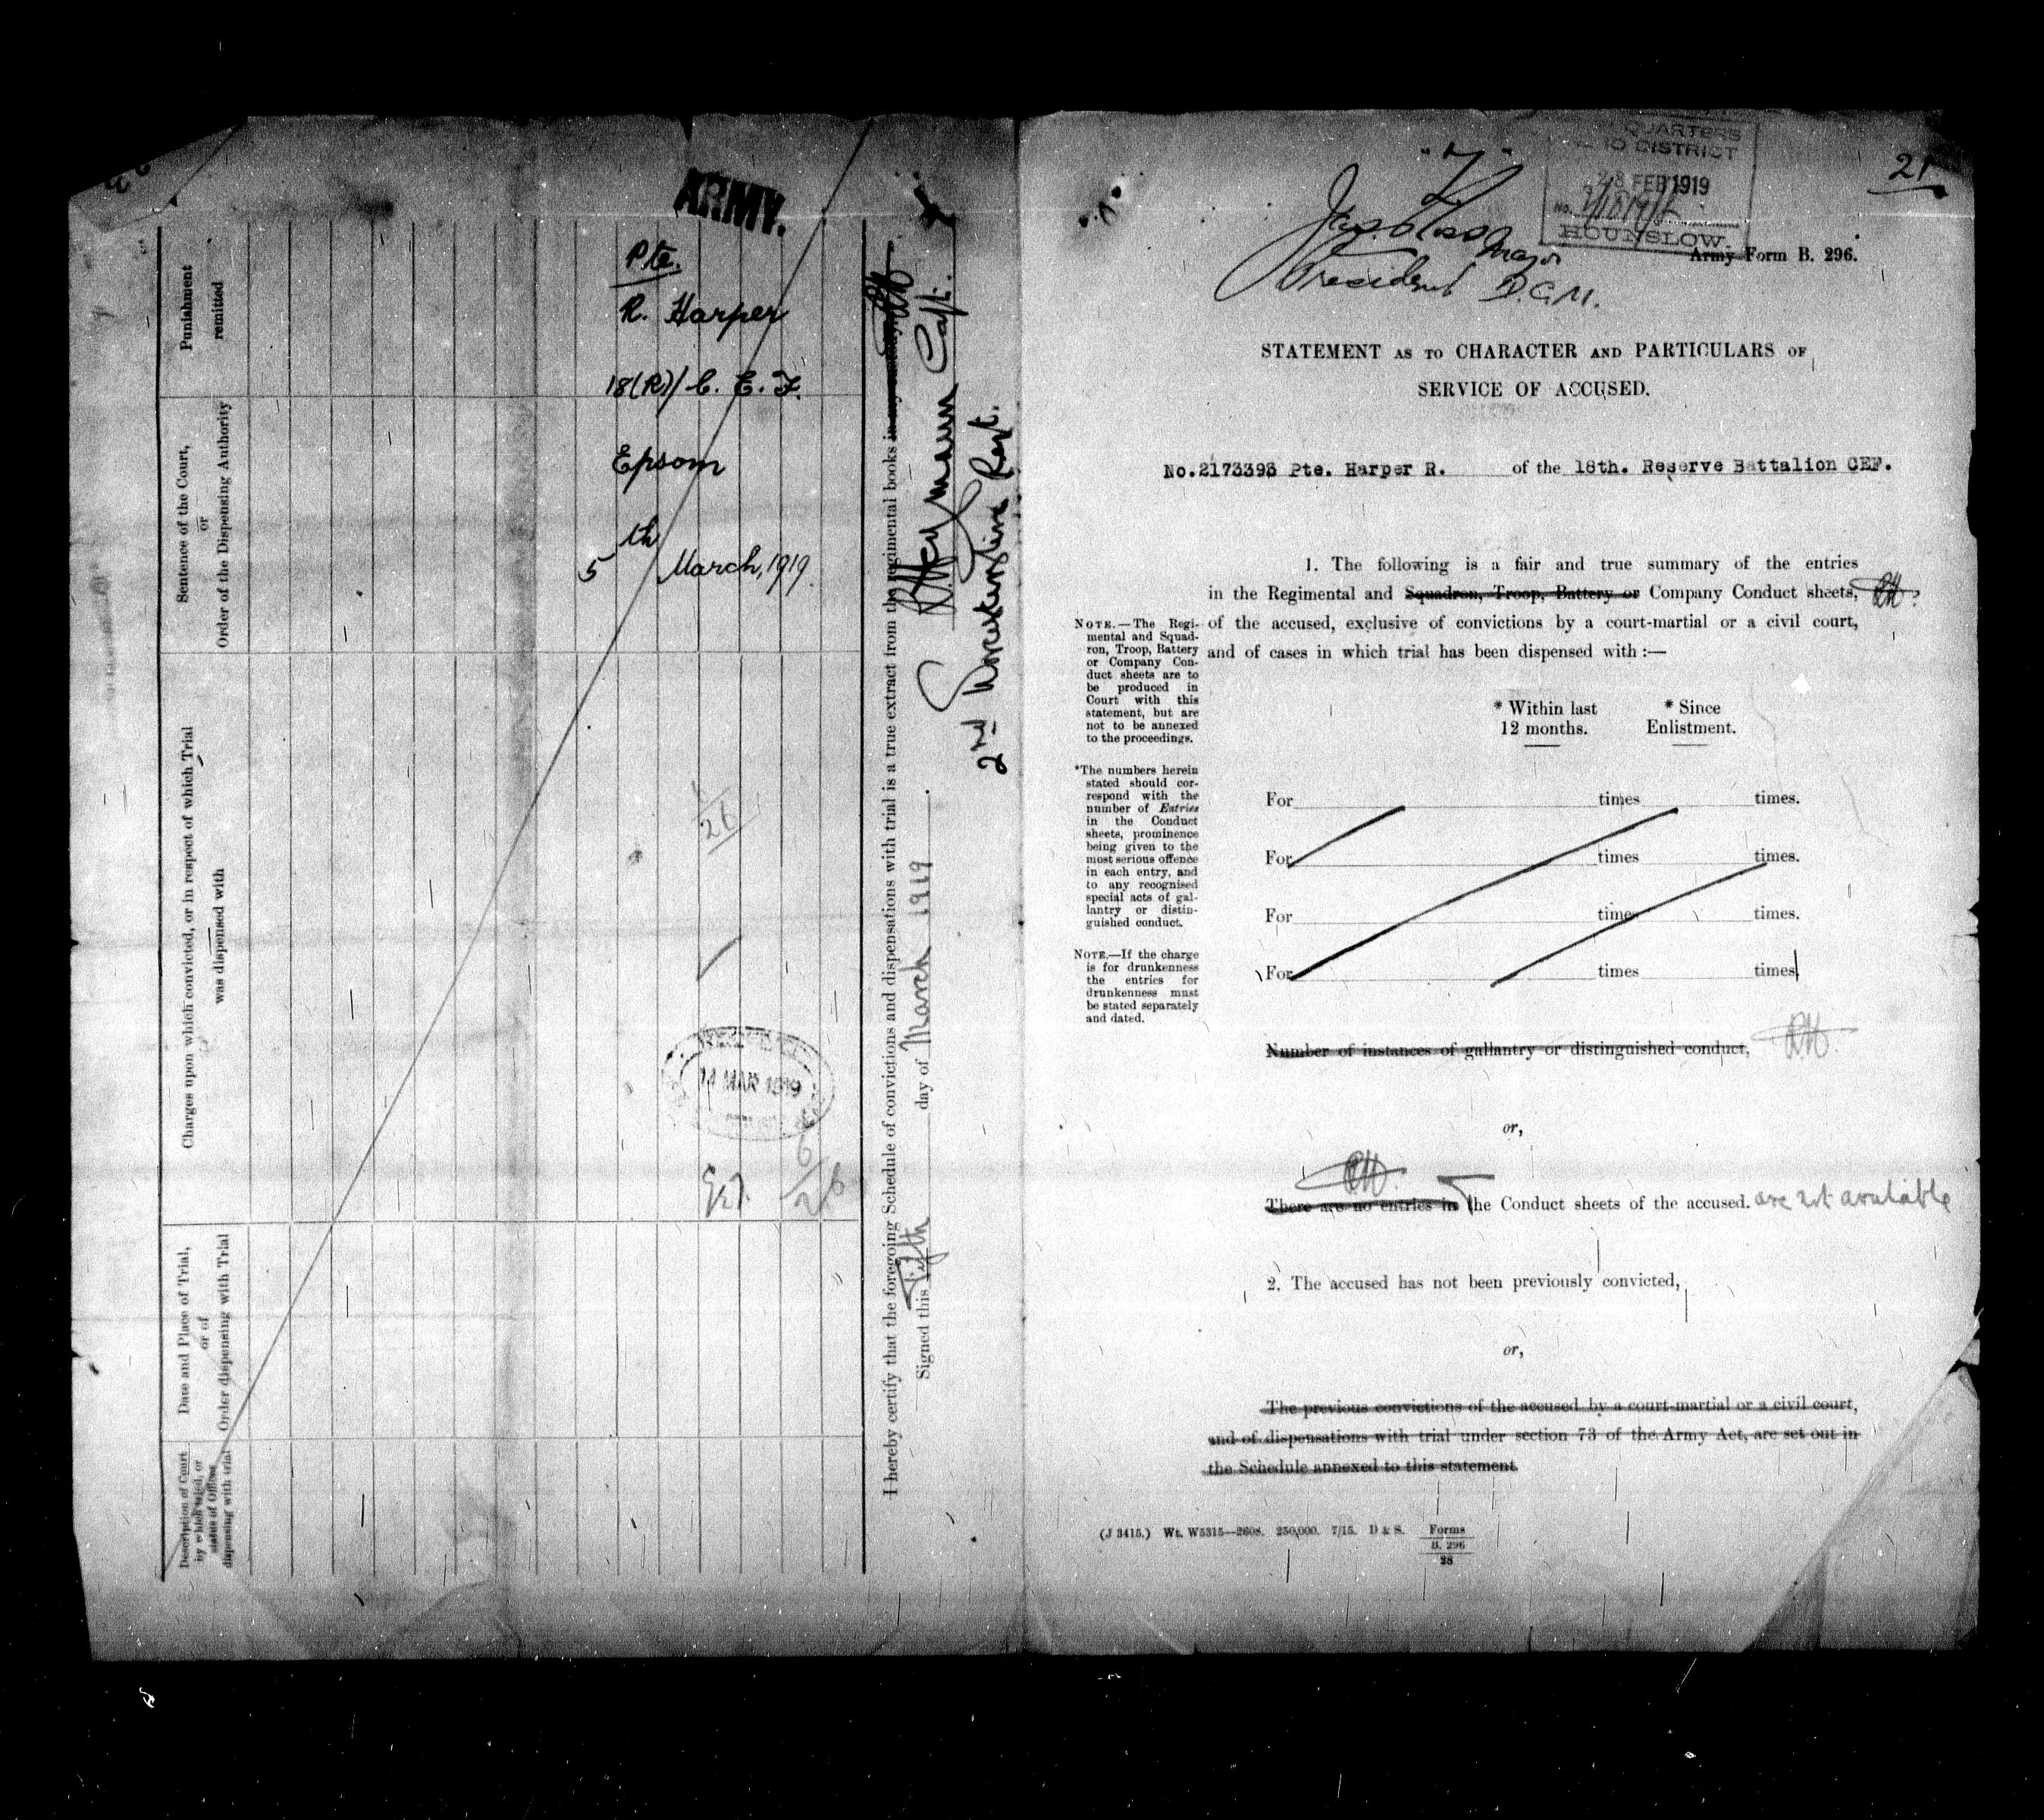 ARMY.
Pte.
R. Harper
18(R)/ C. E. F.
Epsom
5th March, 1919.
14 MAR 1919
Punishment
remitted
Sentence of the Court,
or
Order of the Dispensing Authority
Charges upon which convicted, or in respect of which Trial
was dispensed with
Date and Place of Trial,
or of
Order dispensing with Trial
Description of Court
by which tried, or
status of Officer
dispensing with trial
I hereby certify that the foregoing Schedule of convictions and dispensations with trial is a true extract from the regimental books
Signed this Fifth day of March 1919
Capt.
2nd Regt.
"7"
Major
President D.C.M.
QUARTERS
DISTRICT
28 FEB 1919
No.
HOUNSLOW.
21
Army Form B. 296.
STATEMENT AS TO CHARACTER AND PARTICULARS OF
SERVICE OF ACCUSED.
No. 2173393 Pte. Harper R. of the 18th. Reserve Battalion CEF.
1. The following is a fair and true summary of the entries
in the Regimental and Squadron, Troop, Battery or Company Conduct sheets, RH.
of the accused, exclusive of convictions by a court-martial or a civil court,
and of cases in which trial has been dispensed with :—
NOTE.—The Regi-
mental and Squad-
ron, Troop, Battery
or Company Con-
duct sheets are to
be produced in
Court with this
statement, but are
not to be annexed
to the proceedings.
*The numbers herein
stated should cor-
respond with the
number of Entries
in the Conduct
sheets, prominence
being given to the
most serious offence
in each entry, and
to any recognised
special acts of gal-
lantry or distin-
guished conduct.
NOTE.—If the charge
is for drunkenness
the entries for
drunkenness must
be stated separately
and dated.
* Within last * Since
12 months. Enlistment.
For times times.
For times times.
For times times.
For times times.
Number of instances of gallantry or distinguished conduct, RH.
or,
RH.
There are no entries in the Conduct sheets of the accused. are not available
2. The accused has not been previously convicted,
or,
The previous convictions of the accused by a court-martial or a civil court,
and of dispensations with trial under section 73 of the Army Act, are set out in
the Schedule annexed to this statement.
(J 3415.) Wt. W5315—2608. 250,000. 7/15. D & S. Forms
B. 296
28